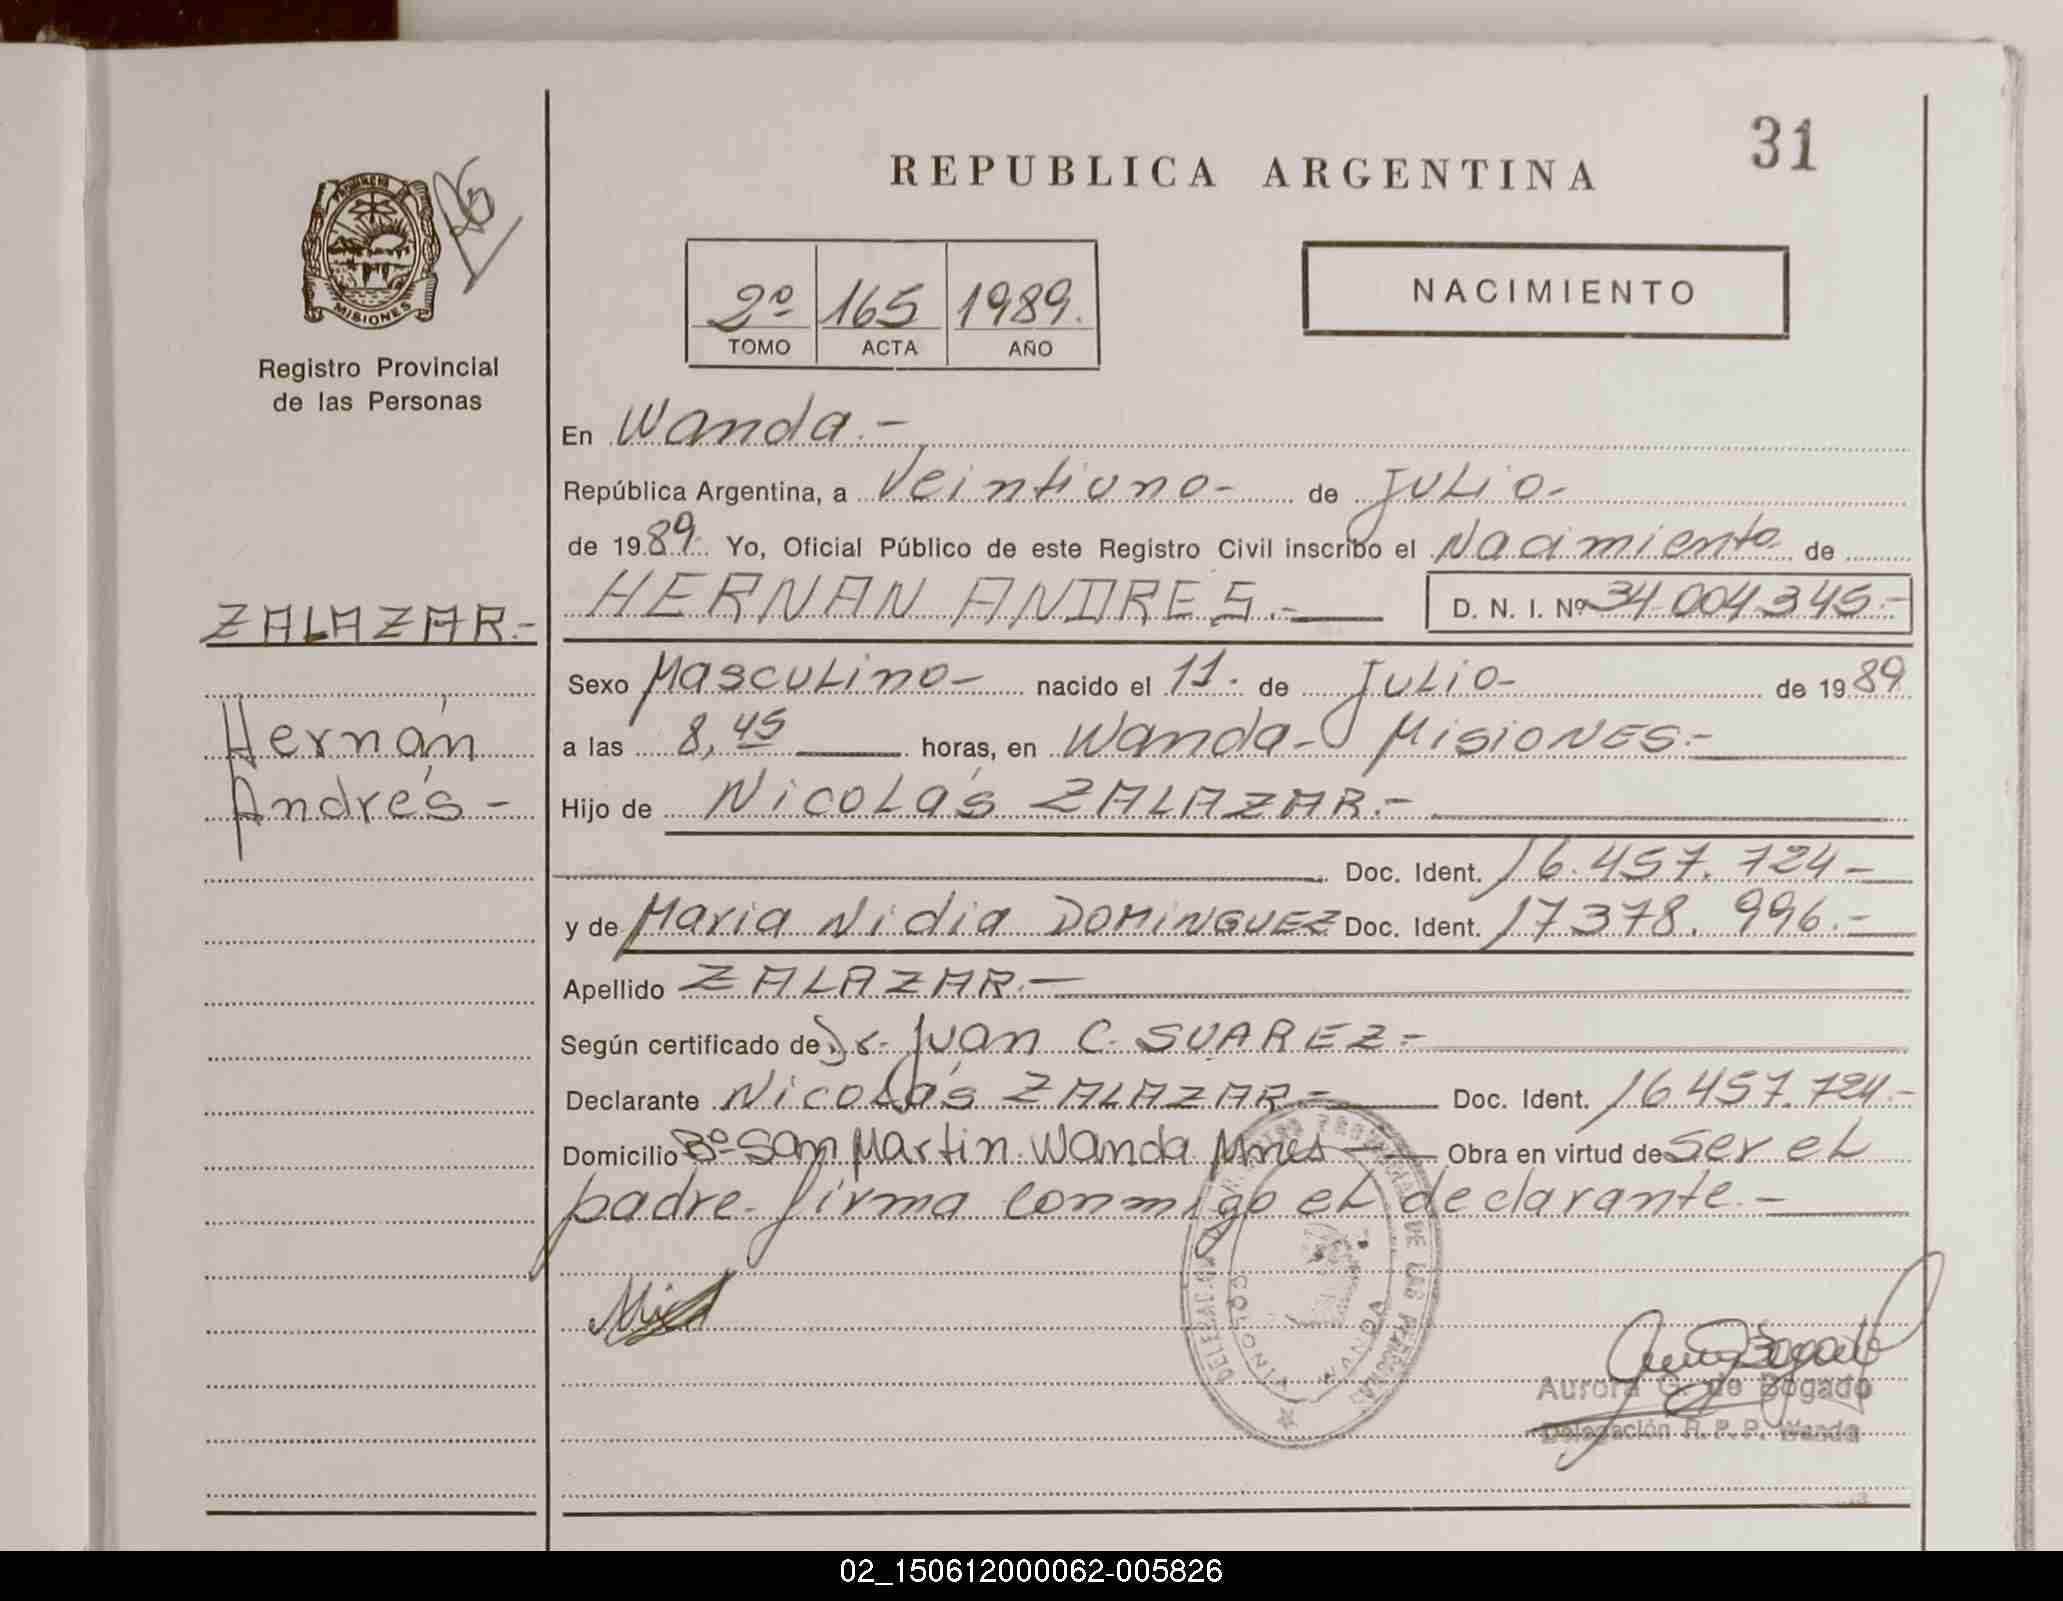 31
REPUBLICA ARGENTINA
PROVINCIA
MISIONES
2º 165 1989.
TOMO ACTA AÑO
NACIMIENTO
Registro Provincial
de las Personas
En Wanda.-
República Argentina, a Veintiuno- de Julio-
de 1989. Yo, Oficial Público de este Registro Civil inscribo el Nacimiento de
HERNAN ANDRES.- D. N. I. Nº 34.004.345.-
ZALAZAR.-
Sexo Masculino- nacido el 11. de Julio- de 1989
Hernán
a las 8,45 horas, en Wanda- Misiones.-
Andrés-
Hijo de Nicolás ZALAZAR.-
Doc. Ident. 16.457.724-
y de Maria Nidia DOMINGUEZ Doc. Ident. 17378.996.-
Apellido ZALAZAR.-
Según certificado de Dr. Juan C. SUAREZ-
Declarante Nicolás ZALAZAR- Doc. Ident. 16457.724.-
Domicilio Bº San Martin. Wanda Mnes- Obra en virtud de ser el
padre. firma conmigo el declarante.-
DELEGACION REGISTRO PROVINCIAL DE LAS PERSONAS
WANDA
Aurora G. de Bogado
Delegación R. P. P. Wanda
02_150612000062-005826